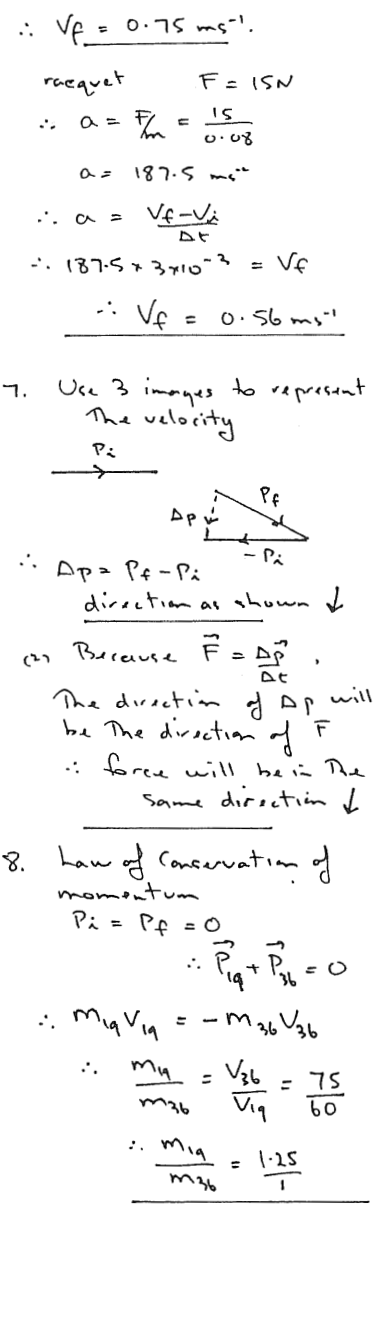 ∴ Vf = 0.75 ms⁻¹.
racquet F = 15N
∴ a = F/m = 15/0.08
a = 187.5 ms⁻²
∴ a = Vf-Vi/Δt
∴ 187.5 x 3x10⁻³ = Vf
∴ Vf = 0.56 ms⁻¹
7. Use 3 images to represent
The velocity
Pi
Pf
Δp
-Pi
∴ Δp = Pf - Pi
direction as shown ↓
(2) Because F⃗ = Δp⃗/Δt ,
The direction of Δp will
be The direction of F
∴ force will be in The
same direction ↓
8. Law of Conservation of
momentum
Pi = Pf = 0
∴ P⃗19 + P⃗36 = 0
∴ m19V19 = - m36V36
∴ m19/m36 = V36/V19 = 75/60
∴ m19/m36 = 1.25/1